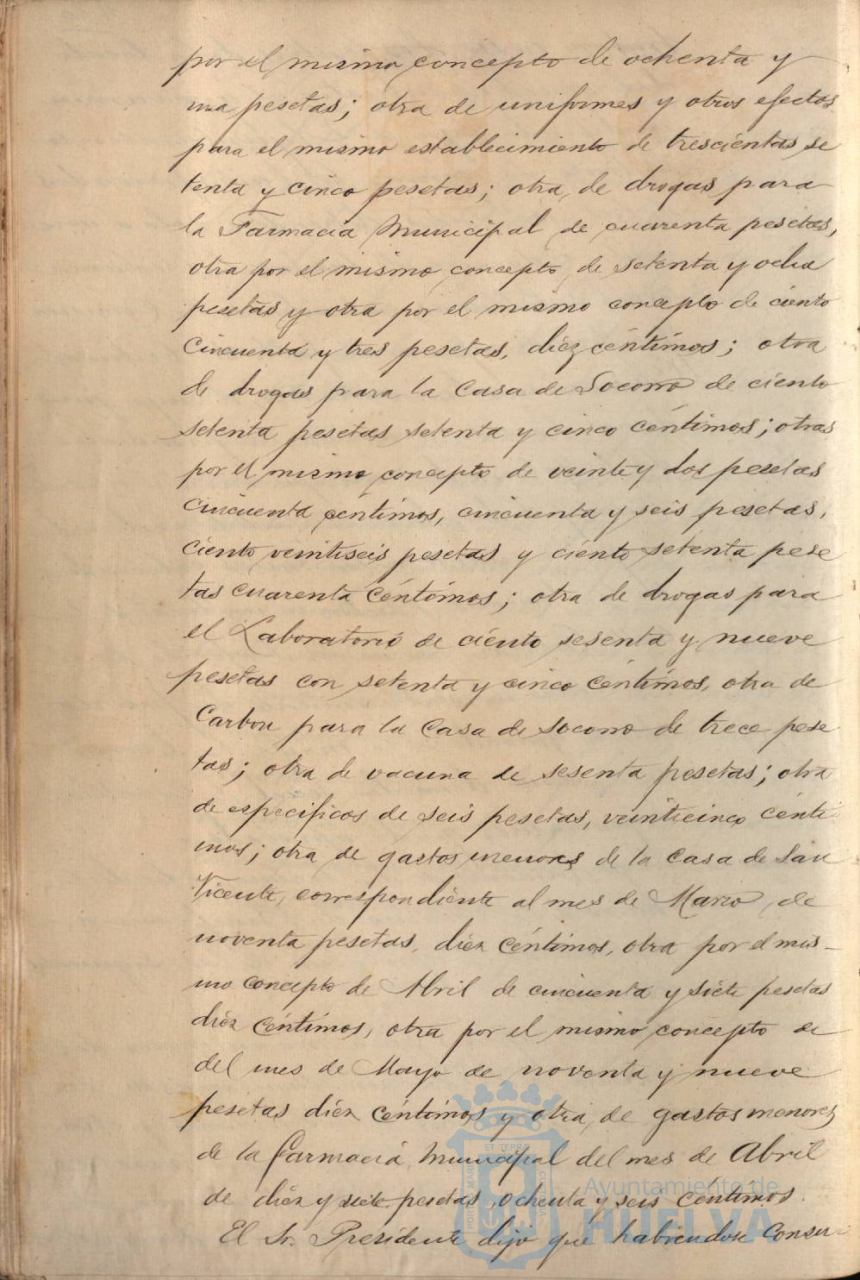 por el mismo concepto de ochenta y
una pesetas; otra de uniformes y otros efectos
para el mismo establecimiento de trescientas se
tenta y cinco pesetas; otra, de drogas para
la Farmacia Municipal de cuarenta pesetas,
otra por el mismo concepto, de setenta y ocho
pesetas y otra por el mismo concepto de ciento
cincuenta y tres pesetas, diez céntimos; otra
de drogas para la Casa de Socorro de ciento
setenta pesetas setenta y cinco céntimos; otras
por el mismo concepto de veinte y dos pesetas
cincuenta centimos, cincuenta y seis pesetas,
ciento veintiseis pesetas y ciento setenta pese
tas cuarenta céntimos; otra de drogas para
el Laboratorio de ciento sesenta y nueve
pesetas con setenta y cinco céntimos, otra de
Carbon para la Casa de Socorro de trece pese
tas; otra de vacuna de sesenta pesetas; otra
de especificos de seis pesetas, veinticinco cénti
mos; otra de gastos menores de la Casa de San
Vicente, correspondiente al mes de Marzo, de
noventa pesetas, diez céntimos, otra por el mis-
mo concepto de Abril de cincuenta y siete pesetas
diéz céntimos, otra por el mismo concepto de
del mes de Mayo de noventa y nueve
pesetas diéz céntimos y otra, de gastos menores
de la farmacia Municipal del mes de Abril
de diéz y siete pesetas, ochenta y seis centimos.
El Sr. Presidente dijo que habiendose
Ayuntamiento de
HUELVA